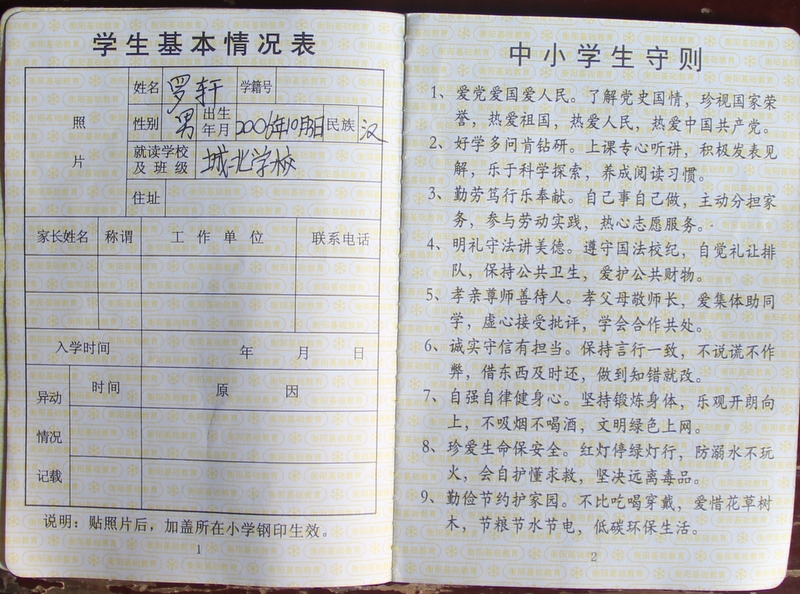 学生基本情况表
照片
姓名 罗轩 学籍号
性别 男 出生年月 2006年10月3日 民族 汉
就读学校及班级 城北学校
住址
家长姓名 称谓 工作单位 联系电话
入学时间 年 月 日
异动情况记载 时间 原因
说明：贴照片后，加盖所在小学钢印生效。
1
中小学生守则
1、爱党爱国爱人民。了解党史国情，珍视国家荣
誉，热爱祖国，热爱人民，热爱中国共产党。
2、好学多问肯钻研。上课专心听讲，积极发表见
解，乐于科学探索，养成阅读习惯。
3、勤劳笃行乐奉献。自己事自己做，主动分担家
务，参与劳动实践，热心志愿服务。
4、明礼守法讲美德。遵守国法校纪，自觉礼让排
队，保持公共卫生，爱护公共财物。
5、孝亲尊师善待人。孝父母敬师长，爱集体助同
学，虚心接受批评，学会合作共处。
6、诚实守信有担当。保持言行一致，不说谎不作
弊，借东西及时还，做到知错就改。
7、自强自律健身心。坚持锻炼身体，乐观开朗向
上，不吸烟不喝酒，文明绿色上网。
8、珍爱生命保安全。红灯停绿灯行，防溺水不玩
火，会自护懂求救，坚决远离毒品。
9、勤俭节约护家园。不比吃喝穿戴，爱惜花草树
木，节粮节水节电，低碳环保生活。
2